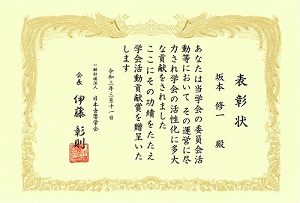 表彰状
坂本 修一 殿
あなたは当学会の委員会活
動等において その運営に尽
力され学会の活性化に多大
な貢献をされました
ここにその功績をたたえ
学会活動貢献賞を贈呈いた
します
令和三年三月十一日
一般社団法人 日本音響学会
会長 伊藤 彰則